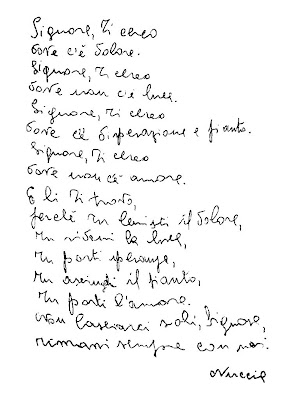 Signore, Ti cerco
dove c'è dolore.
Signore, Ti cerco
dove non c'è luce.
Signore, Ti cerco
dove c'è disperazione e pianto.
Signore, Ti cerco
dove non c'è amore.
E lì Ti trovo,
perché Tu lenisci il dolore,
Tu ridoni la luce,
Tu porti speranza,
Tu asciughi il pianto,
Tu porti l'amore.
Non lasciarci soli, Signore,
rimani sempre con noi.
Nuccia